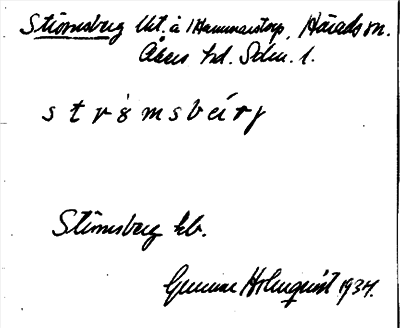 Strömsberg Utt. å 1 Hammarstorp, Härads sn.
Åkers hd. Södm. l.
strömsbärj
Strömsberg kb.
Gunnar Holmquist 1934.